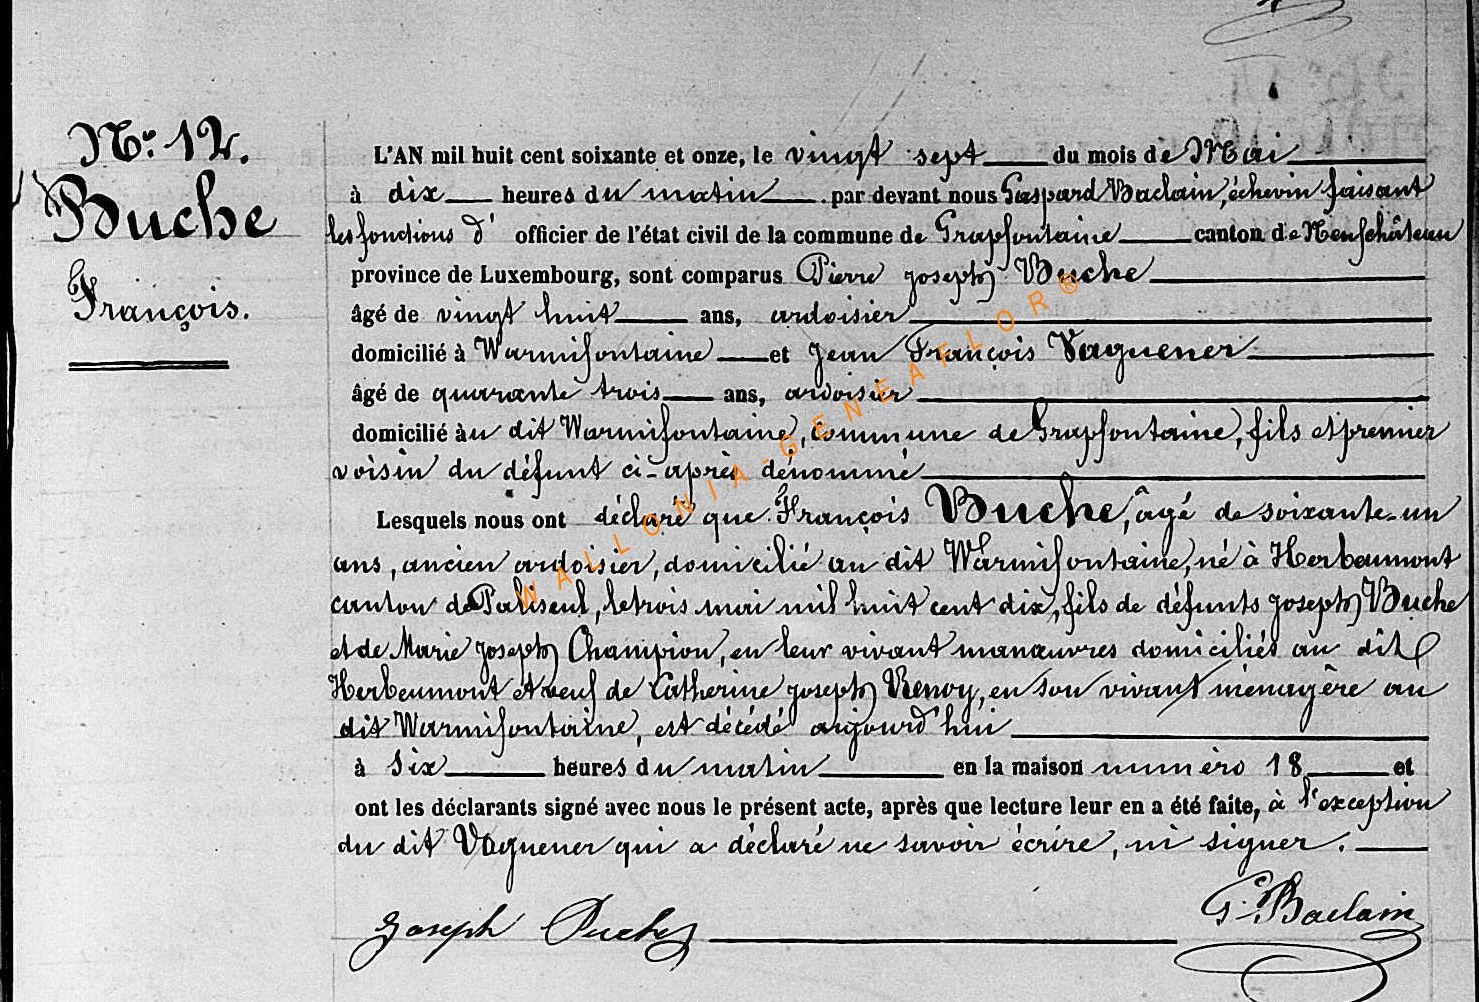 N° 12.
Buche
François.
L'AN mil huit cent soixante et onze, le vingt sept du mois de Mai
à dix heures du matin par devant nous Gaspard Baclain, échevin faisant
les fonctions d' officier de l'état civil de la commune de Grapfontaine canton de Neufchâteau
province de Luxembourg, sont comparus Pierre joseph Buche
âgé de vingt huit ans, ardoisier
domicilié à Warmifontaine et Jean François Vaguener
âgé de quarante trois ans, ardoisier
domicilié àu dit Warmifontaine, commune de Grapfontaine, fils et premier
voisin du défunt ci-après dénommé
Lesquels nous ont déclaré que François Buche, âgé de soixante-un
ans, ancien ardoisier, domicilié au dit Warmifontaine, né à Herbeumont
canton de Paliseul, le trois mai mil huit cent dix, fils de défunts joseph Buche
et de Marie joseph Champion, en leur vivant manœuvres domiciliés au dit
Herbeumont et veuf de Catherine joseph Renoy, en son vivant ménagère au
dit Warmifontaine, est décédé aujourd'hui
à six heures du matin en la maison numéro 18 et
ont les déclarants signé avec nous le présent acte, après que lecture leur en a été faite, à l'exception
du dit Vaguener qui a déclaré ne savoir écrire, ni signer.
Joseph Buche G. Baclain
WALLONIA-GENEAFLOR®